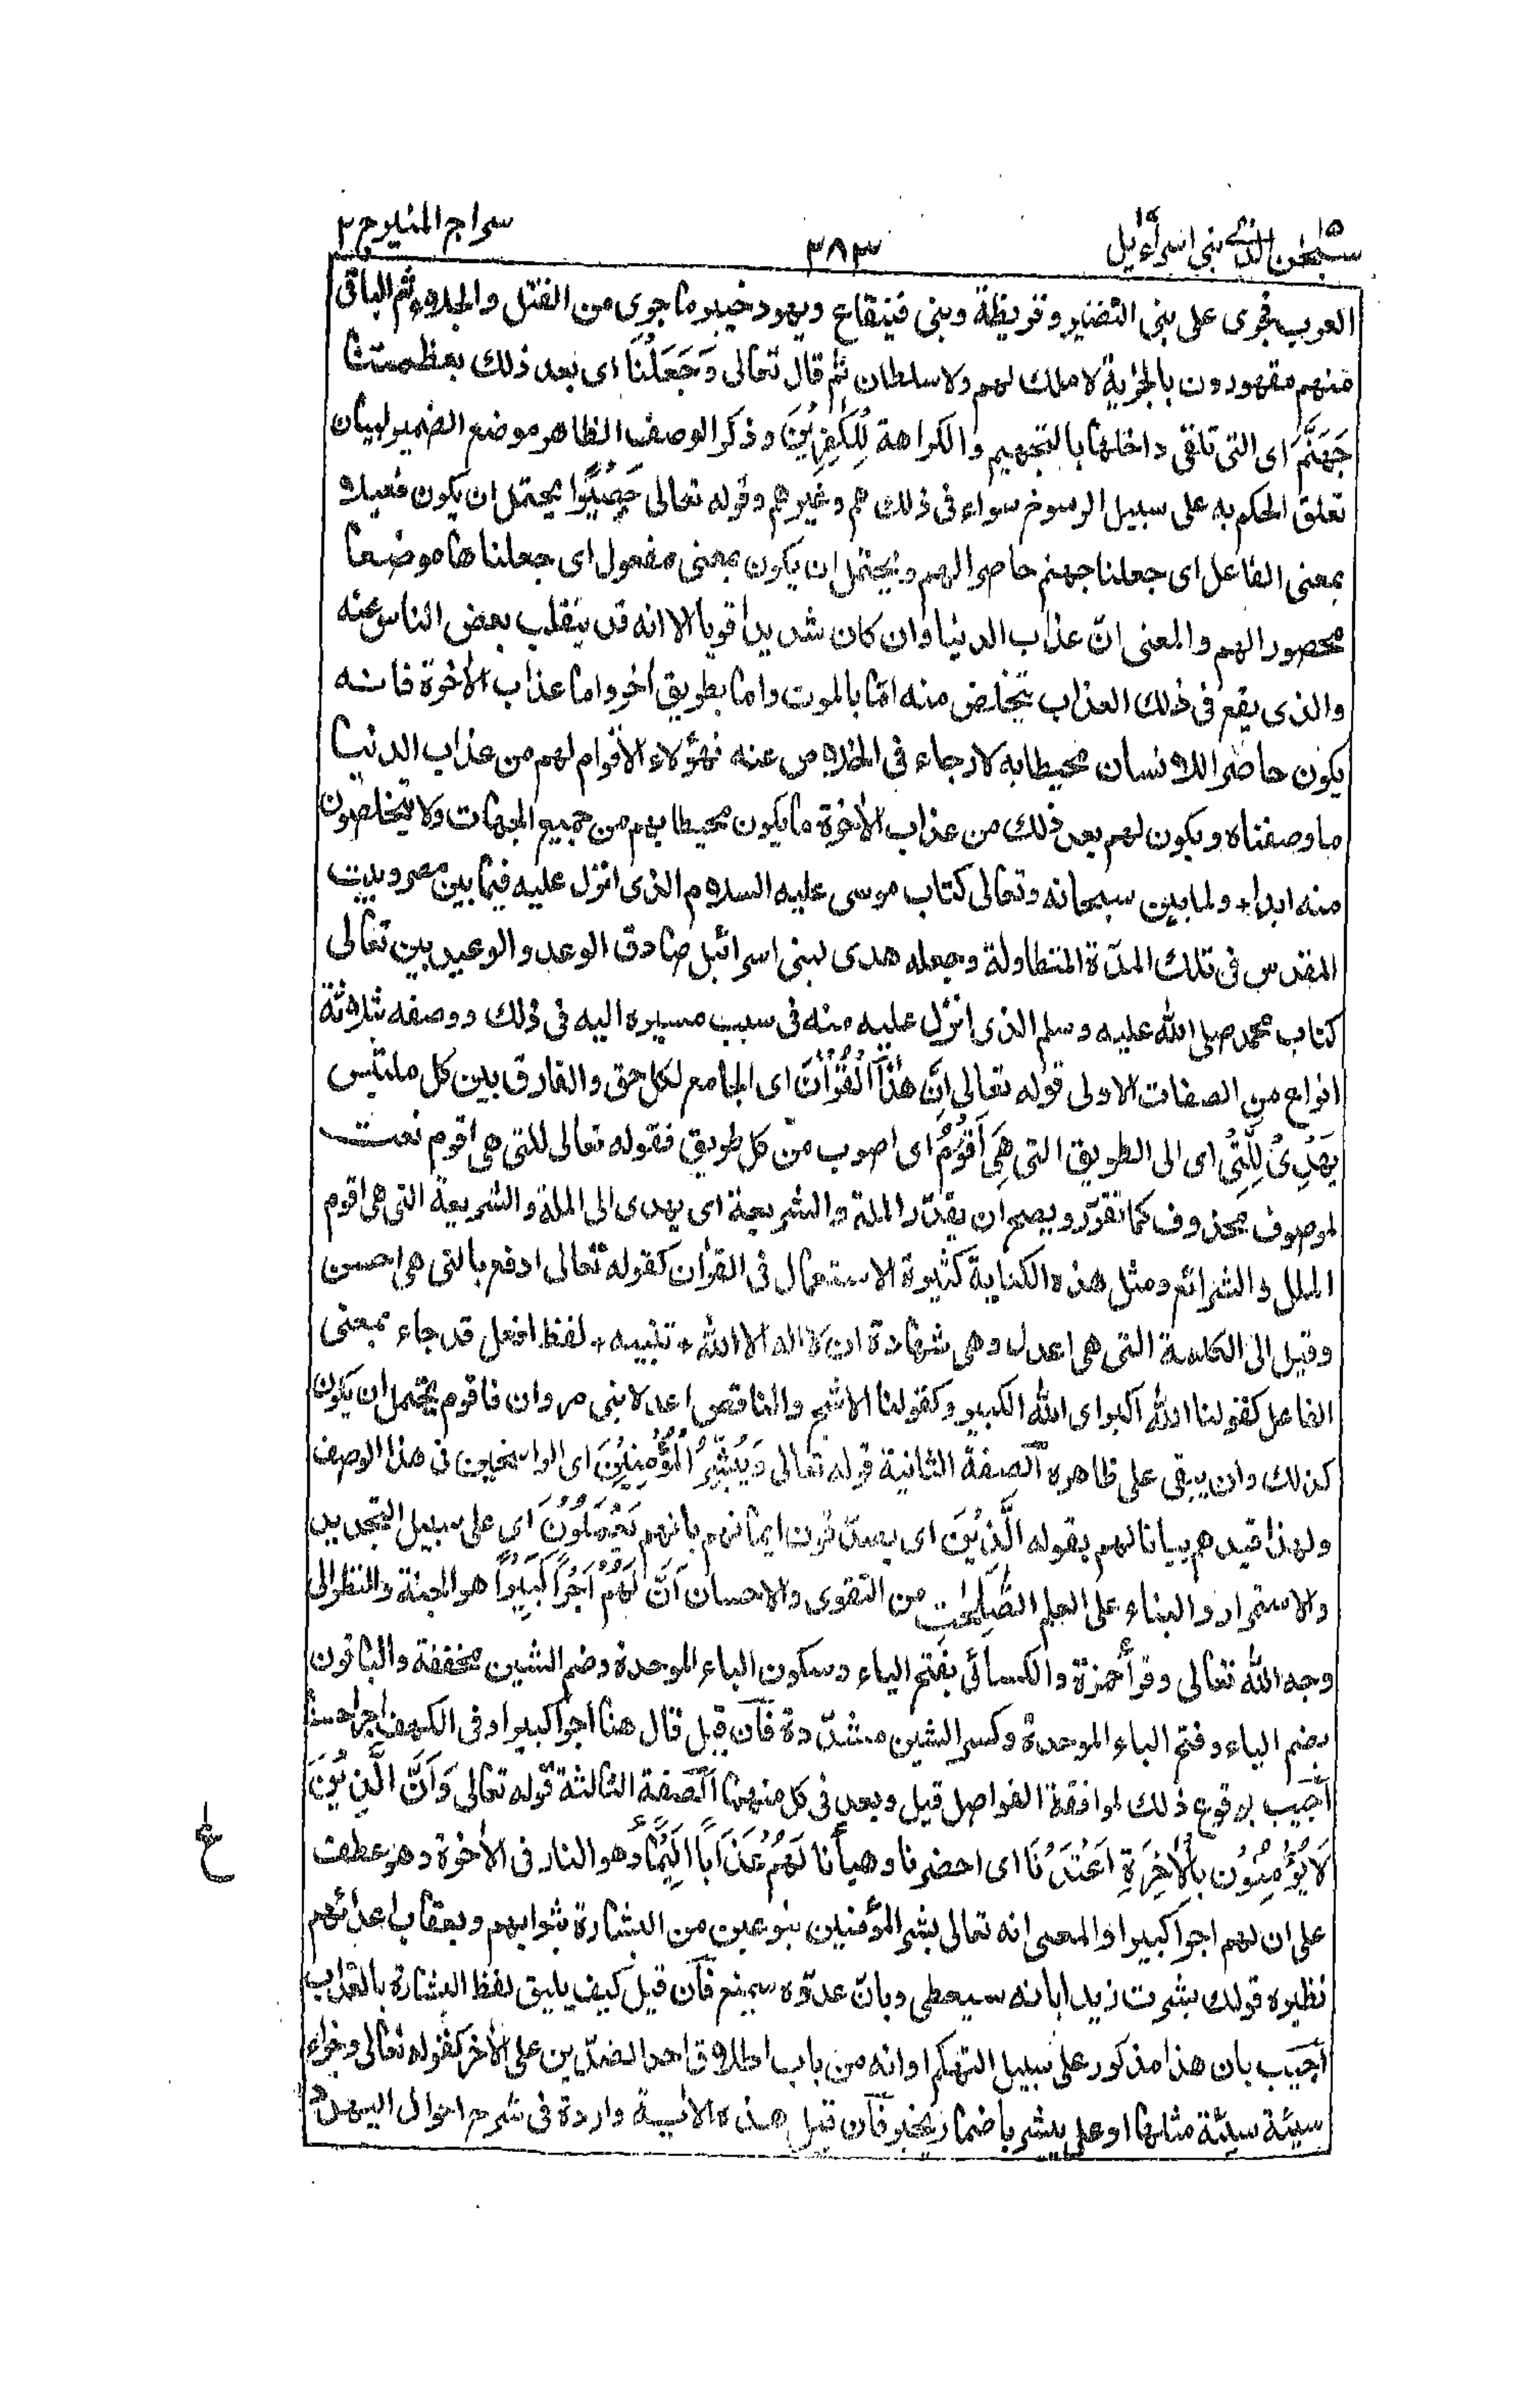 سبحٰن الذی ١٥ بنی اسراءیل ١٧
٣٨٣
سراج المنیر ج ٢
العرب فجرى على بنی النضیر وقریظة وبنی قینقاع ویهود خیبر ما جرى من القتل والجلاء ثم الباقی
منهم مقهورون بالجزیة لا ملك لهم ولا سلطان ثم قال تعالى وَجَعَلْنَا ای بعد ذلك بعظمتنا
جَهَنَّمَ ای التی تلقى داخلها بالتجهم والكراهة لِلْكٰفِرِیْنَ وذكر الوصف الظاهر موضع الضمیر لبیان
تعلق الحكم به على سبیل الرسوخ سواء فی ذلك هم وغیرهم وقوله تعالى حَصِیْرًا یحتمل ان یكون فعیلا
بمعنى الفاعل ای جعلنا جهنم حاصرا لهم ویحتمل ان یكون بمعنى مفعول ای جعلناها موضعا
محصورا لهم والمعنى انّ عذاب الدنیا وان كان شدیدا قویا الا انه قد یتفلت بعض الناس عنه
والذی یقع فی ذلك العذاب یتخلص منه امّا بالموت واما بطریق اٰخر واما عذاب الاٰخرة فانه
یكون حاصرا للانسان محیطا به لا رجاء فی الخلاص عنه فهؤلاء الاقوام لهم من عذاب الدنیا
ما وصفناه ویكون لهم بعد ذلك من عذاب الاٰخرة ما یكون محیطا بهم من جمیع الجهات ولا یتخلصون
منه ابدا + ولما بین سبحانه وتعالى كتاب موسى علیه السلام الذی انزل علیه فیما بین مصر وبیت
المقدس فی تلك المدّة المتطاولة وجعله هدى لبنی اسرائیل صادق الوعد والوعید بین تعالى
كتاب محمد صلى الله علیه وسلم الذی انزل علیه منه فی سبب مسیره الیه فی ذلك ووصفه بثلاثة
انواع من الصفات الاولى قوله تعالى اِنَّ هٰذَا الْقُرْاٰنَ ای الجامع لكل حق والفارق بین كل ملتبس
یَهْدِیْ لِلَّتِیْ ای الى الطریق التی هِیَ اَقْوَمُ ای اصوب من كل طریق فقوله تعالى للتی هی اقوم نعت
لموصوف محذوف كما تقرّر ویصح ان یقدّر الملة والشریعة ای یهدی الى الملة والشریعة التی هی اقوم
الملل والشرائع ومثل هذه الكنایة كثیرة الاستعمال فی القراٰن كقوله تعالى ادفع بالتی هی احسن
وقیل الى الكلمة التی هی اعدل وهی شهادة ان لا اله الا الله + تنبیه + لفظ افعل قد جاء بمعنى
الفاعل كقولنا الله اكبر ای الله الكبیر وكقولنا الاشج والناقص اعدلا بنی مروان فاقوم یحتمل ان یكون
كذلك وان یبقى على ظاهره الصفة الثانیة قوله تعالى وَیُبَشِّرُ الْمُؤْمِنِیْنَ ای الراسخین فی هذا الوصف
ولهذا قیدهم بیانا لهم بقوله الَّذِیْنَ ای یصدّقون ایمانهم بانهم یَعْمَلُوْنَ ای على سبیل التجدید
والاستمرار والبناء على العلم الصّٰلِحٰتِ من التقوى والاحسان اَنَّ لَهُمْ اَجْرًا كَبِیْرًا هو الجنة والنظر الى
وجه الله تعالى وقرأ حمزة والكسائی بفتح الیاء وسكون الباء الموحدة وضم الشین مخففة والباقون
بضم الیاء وفتح الباء الموحدة وكسر الشین مشدّدة فان قیل قال هنا اجرا كبیرا وفی الكهف اجرا حسنا
اجیب بوقوع ذلك لموافقة الفواصل قبل وبعد فی كل منهما الصفة الثالثة قوله تعالى وَاَنَّ الَّذِیْنَ
لَا یُؤْمِنُوْنَ بِالْاٰخِرَةِ اَعْتَدْنَا ای احضرنا وهیأنا لَهُمْ عَذَابًا اَلِیْمًا وهو النار فی الاٰخرة وهو عطف
على ان لهم اجرا كبیرا والمعنى انه تعالى بشر المؤمنین بنوعین من البشارة بثوابهم وبعقاب اعدائهم
نظیره قولك بشرت زیدا بانه سیعطى وبانّ عدوّه سیمنع فان قیل كیف یلیق لفظ البشارة بالعذاب
اجیب بان هذا مذكور على سبیل التهكم او انه من باب اطلاق احد الضدّین على الاٰخر كقوله تعالى وجزاء
سیئة سیئة مثلها او على یبشر باضمار یخبر فان قیل هذه الاٰیة واردة فی شرح احوال الیهود
ع